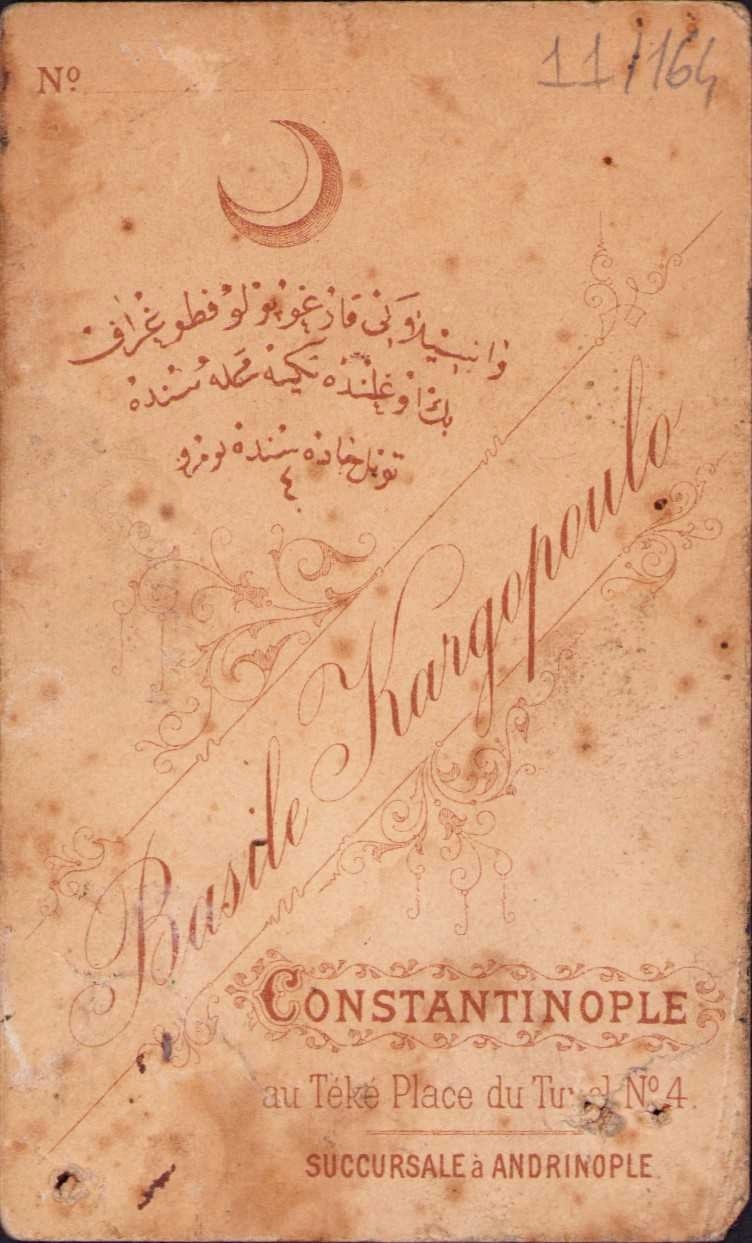 Nº
11/164
قارغوپولو فطوغراف
بك اوغلنده تكيه محله سنده
تونل جاده سنده نومرو
٤
Basile Kargopoulo
CONSTANTINOPLE
au Téké Place du Nº 4
SUCCURSALE à ANDRINOPLE